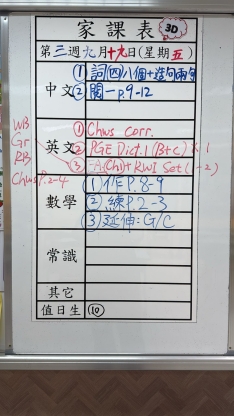 家課表 3D
第三週九月十九日(星期五)
中文
① 詞四八個+造句兩句
② 閱一 P.9-12
WB
GF
RB
Chws P.2-4
英文
① Chws corr.
② PGE Dict.1 (B+C) × 1
③ (Chi)+RWI Set (1-2)
數學
(1) 作 P.8-9
(2) 練 P.2-3
(3) 延伸:G/C
常識
其它
值日生 ⑩